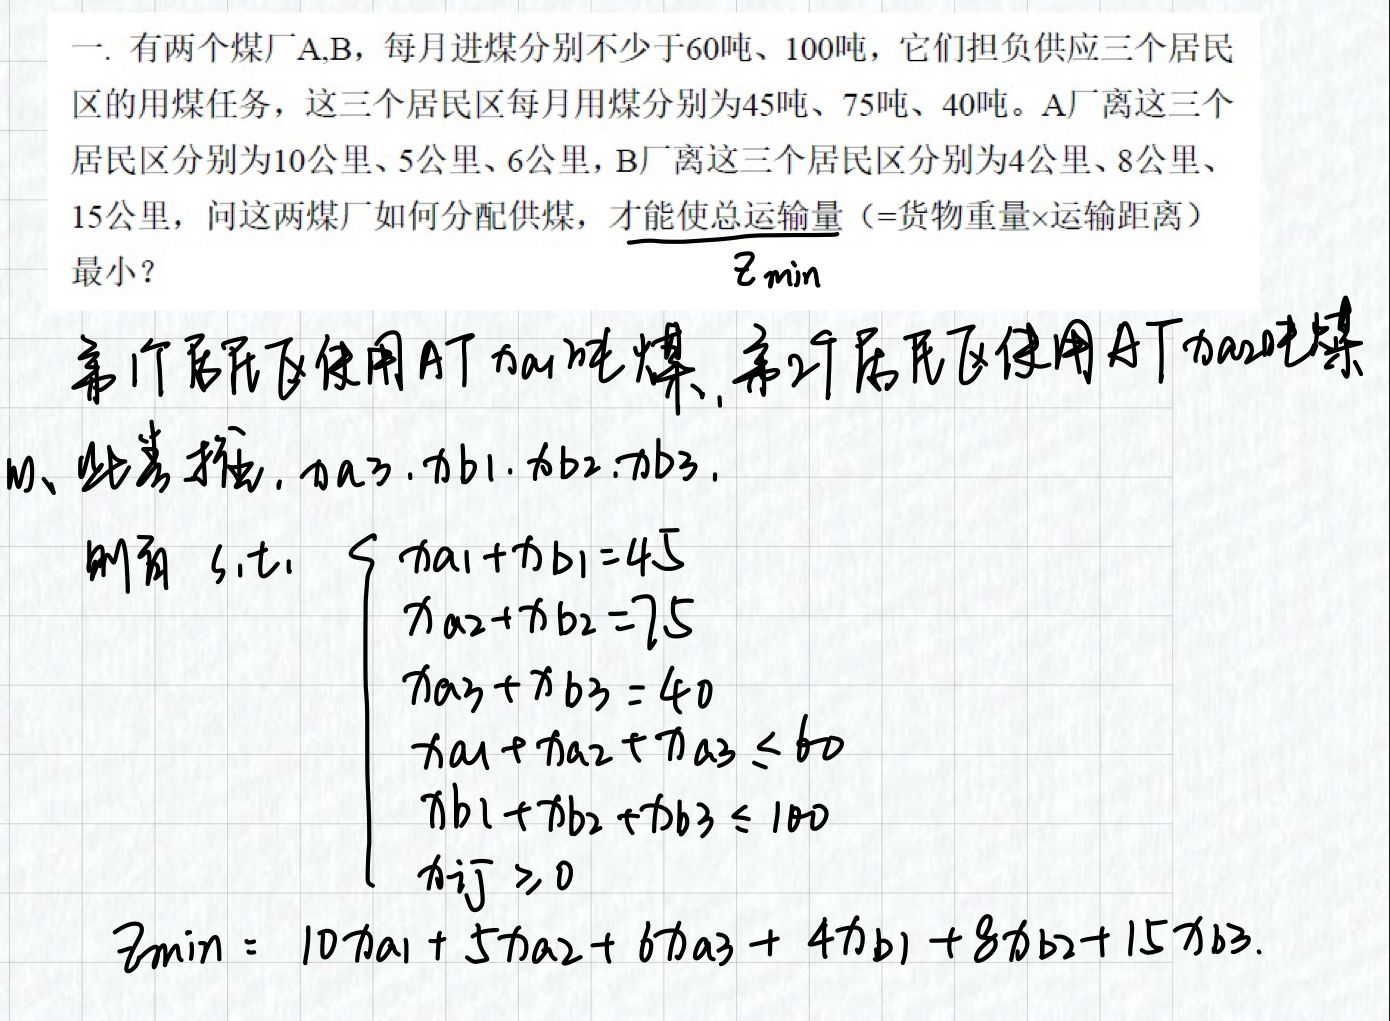 一. 有两个煤厂A,B，每月进煤分别不少于60吨、100吨，它们担负供应三个居民
区的用煤任务，这三个居民区每月用煤分别为45吨、75吨、40吨。A厂离这三个
居民区分别为10公里、5公里、6公里，B厂离这三个居民区分别为4公里、8公里、
15公里，问这两煤厂如何分配供煤，才能使总运输量（=货物重量×运输距离）
最小？
Zmin
第1个居民区使用A厂xa1吨煤，第2个居民区使用A厂xa2吨煤
以此类推，xa3.xb1.xb2.xb3.
则有 s.t. { xa1+xb1=45
xa2+xb2=75
xa3+xb3=40
xa1+xa2+xa3≤60
xb1+xb2+xb3≤100
xij≥0
Zmin = 10xa1+5xa2+6xa3+4xb1+8xb2+15xb3.